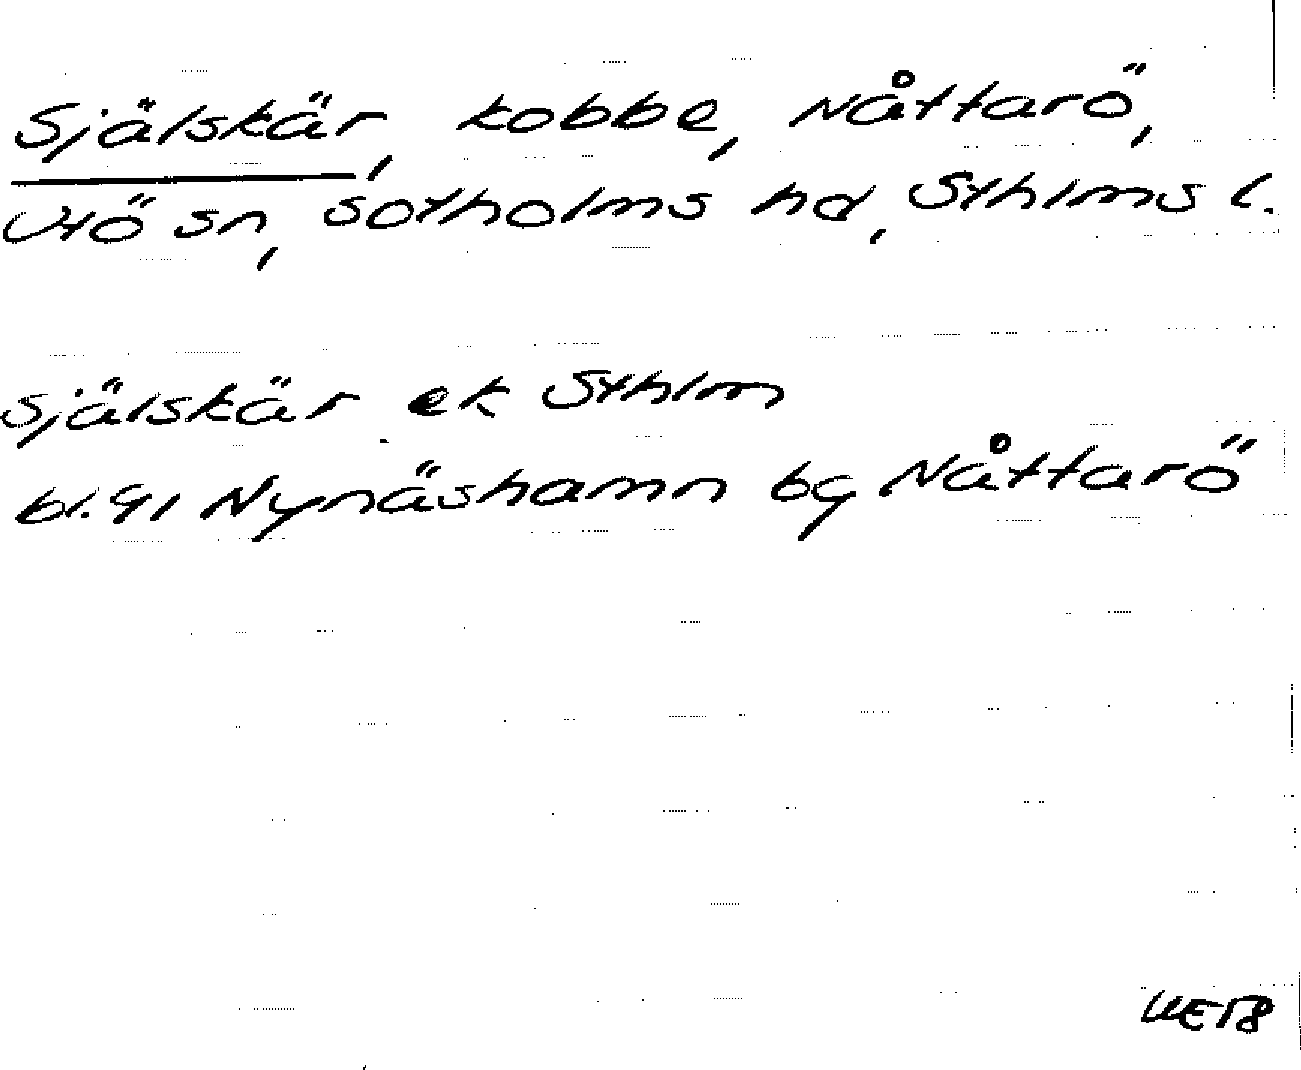 Själskär, kobbe, Nåttarö,
Utö sn, Sotholms hd, Sthlms l.
Själskär ek Sthlm
bl. 91 Nynäshamn bg Nåttarö